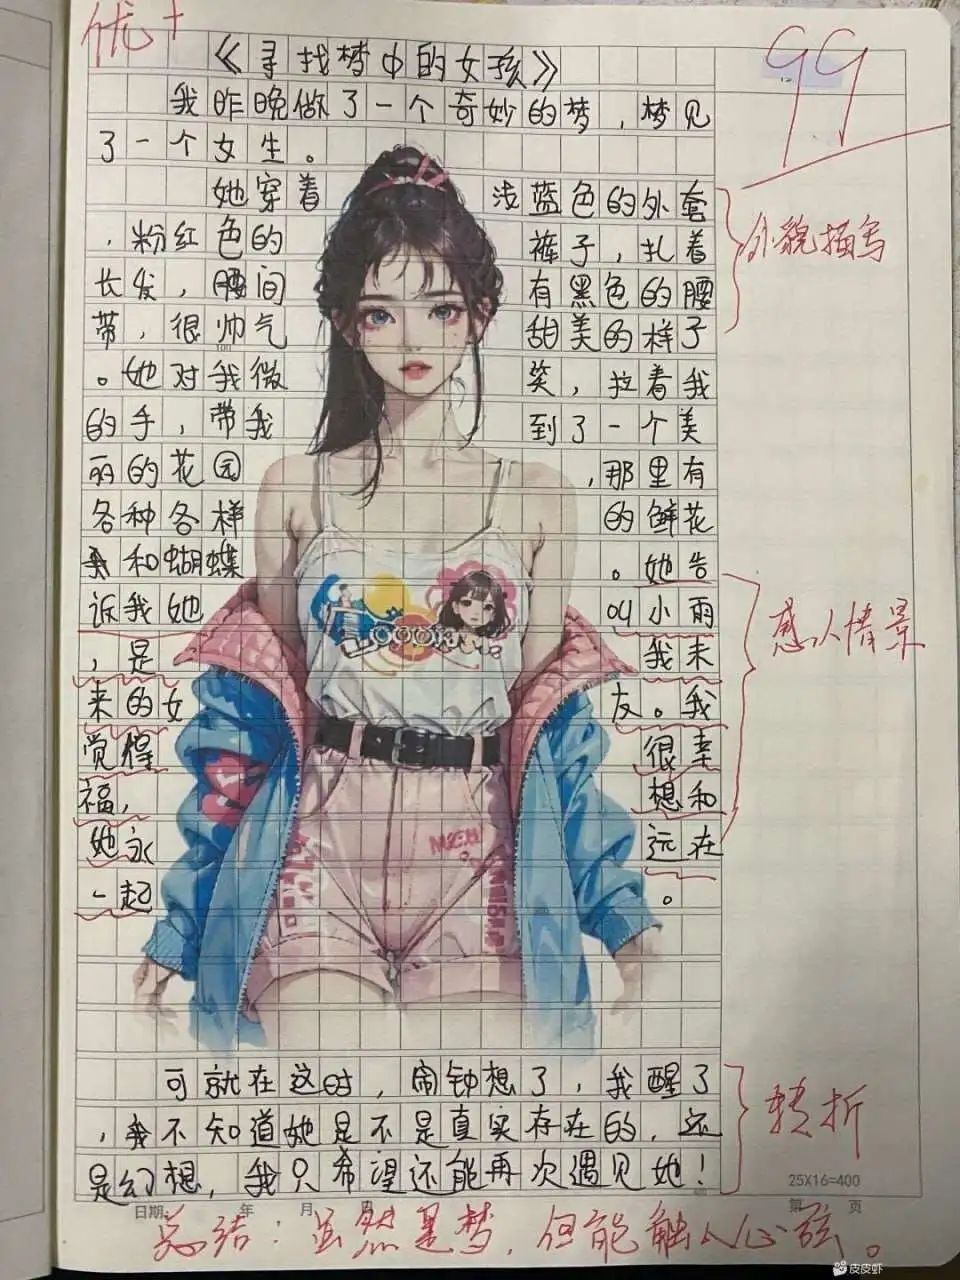 优+
99
《寻找梦中的女孩》
我昨晚做了一个奇妙的梦，梦见
了一个女生。
她穿着浅蓝色的外套
，粉红色的裤子，扎着
长发，腰间有黑色的腰
带，很帅气甜美的样子
。她对我微笑，拉着我
的手，带我到了一个美
丽的花园，那里有
各种各样的鲜花
和蝴蝶。她告
诉我她叫小雨
，是我未
来的女友。我
觉得很幸
福，想和
她永远在
一起。
外貌描写
感人情景
可就在这时，闹钟想了，我醒了
，我不知道她是不是真实存在的，还
是幻想，我只希望还能再次遇见她！
转折
25X16=400
日期 年 月 日 第 页
总结：虽然是梦，但能触人心弦。
皮皮虾